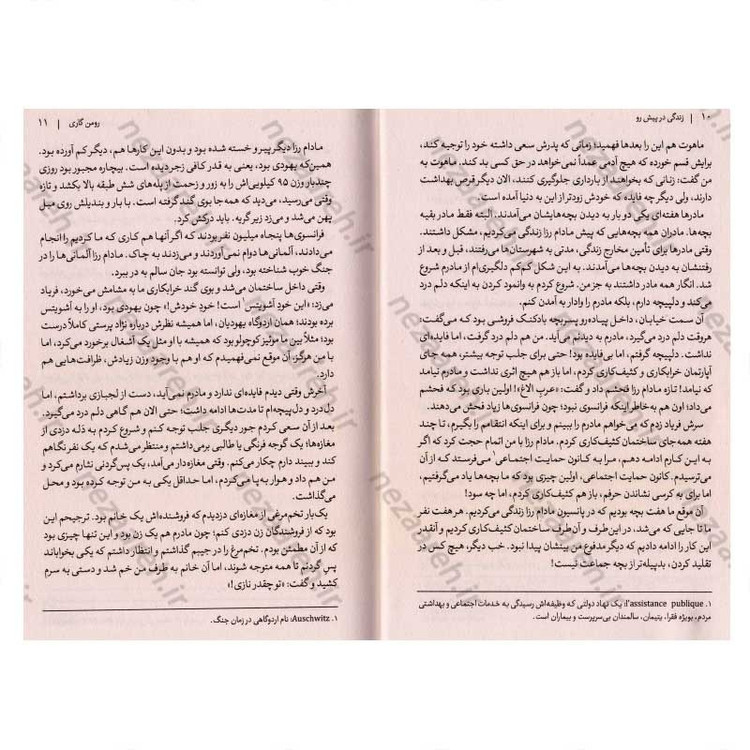 ۱۰ | زندگی در پیش رو
ماهوت هم این را بعدها فهمید؛ زمانی که پدرش سعی داشته خود را توجیه کند،
برایش قسم خورده که هیچ آدمی عمداً نمی‌خواهد در حق کسی بد کند. ماهوت به
من گفت: زنانی که بخواهند از بارداری جلوگیری کنند، الان دیگر قرص بهداشت
دارند، ولی دیگر چه فایده که خودش زودتر از این به دنیا آمده است.
مادرها هفته‌ای یکی دو بار به دیدن بچه‌هایشان می‌آمدند. البته فقط مادر بقیه
بچه‌ها. مادران همه بچه‌هایی که پیش مادام رزا زندگی می‌کردیم، مشکل داشتند.
وقتی مادرها برای تأمین مخارج زندگی، مدتی به شهرستان‌ها می‌رفتند، قبل و بعد از
رفتنشان به دیدن بچه‌ها می‌آمدند. به این شکل کم‌کم دلگیری‌ام از مادرم شروع
شد. انگار همه مادر داشتند به جز من. شروع کردم به وانمود کردن به اینکه دلم درد
می‌کند و دلپیچه دارم، بلکه مادرم را وادار به آمدن کنم.
آن سمت خیابان، داخل پیاده‌رو پسربچه بادکنک فروشی بود که می‌گفت:
هروقت دلم درد می‌گیرد، مادرم به دیدنم می‌آید. من هم دلم درد گرفت، اما فایده‌ای
نداشت. دلپیچه گرفتم، اما بی‌فایده بود! حتی برای جلب توجه بیشتر، همه جای
آپارتمان خرابکاری و کثیف‌کاری کردم، اما باز هم هیچ اثری نداشت و مادرم نیامد
که نیامد! تازه مادام رزا فحشم داد و گفت: «عرب الاغ!». اولین باری بود که فحشم
می‌داد؛ اون هم به‌خاطر اینکه فرانسوی نبود؛ چون فرانسوی‌ها زیاد فحش می‌دهند.
سرش فریاد زدم که می‌خواهم مادرم را ببینم و برای اینکه انتقامم را بگیرم، تا چند
هفته همه‌جای ساختمان کثیف‌کاری کردم. مادام رزا با من اتمام حجت کرد که اگر
به این کارم ادامه دهم، مرا به کانون حمایت اجتماعی۱ می‌فرستد که از آن
می‌ترسیدم. کانون حمایت اجتماعی، اولین چیزی بود که ما بچه‌ها یاد می‌گرفتیم،
اما برای به کرسی نشاندن حرفم، باز هم کثیف‌کاری کردم، اما چه سود!
آن موقع ما هفت بچه بودیم که در پانسیون مادام رزا زندگی می‌کردیم. هر هفت نفر
ما تا جایی که می‌شد، در این‌طرف و آن‌طرف ساختمان کثیف‌کاری کردیم و آنقدر
این کار را ادامه دادیم که دیگر مدفوع من بینشان پیدا نبود. خب دیگر، هیچ کس در
تقلید کردن، بدپیله‌تر از بچه جماعت نیست!
۱. l'assistance publique: یک نهاد دولتی که وظیفه‌اش رسیدگی به خدمات اجتماعی و بهداشتی
مردم، بویژه فقرا، یتیمان، سالمندان بی‌سرپرست و بیماران است.
رومن گاری | ۱۱
مادام رزا دیگر پیر و خسته شده بود و بدون این کارها هم، دیگر کم آورده بود.
همین‌که یهودی بود، یعنی به قدر کافی زجر دیده است. بیچاره مجبور بود روزی
چندبار وزن ۹۵ کیلویی‌اش را به زور و زحمت از پله‌های شش طبقه بالا بکشد و تازه
وقتی می‌رسید، می‌دید که همه‌جا بوی گند گرفته است. با بار و بندیلش روی مبل
پهن می‌شد و می‌زد زیر گریه. باید درکش کرد.
فرانسوی‌ها پنجاه میلیون نفر بودند که اگر آنها هم کاری که ما کردیم را انجام
می‌دادند، آلمانی‌ها دوام نمی‌آوردند و می‌زدند به چاک. مادام رزا آلمانی‌ها را در
جنگ خوب شناخته بود، ولی توانسته بود جان سالم به در ببرد.
وقتی داخل ساختمان می‌شد و بوی گند خرابکاری ما به مشامش می‌خورد، فریاد
می‌زد: «این خودِ آشویتس۱ است! خودِ خودش!» چون یهودی بود، او را به آشویتس
برده بودند؛ همان اردوگاه یهودیان، اما همیشه نظرش درباره نژاد پرستی کاملاً درست
بود؛ مثلاً بین ما موئیز کوچولو بود که همیشه با او مثل یک آشغال برخورد می‌کرد، اما
با من هرگز. آن موقع نمی‌فهمیدم که او هم با وجود وزن زیادش، ظرافت‌هایی هم
دارد.
آخرش وقتی دیدم فایده‌ای ندارد و مادرم نمی‌آید، دست از لجبازی برداشتم، اما
دل‌درد و دل‌پیچه‌ام تا مدت‌ها ادامه داشت؛ حتی الان هم گاهی دلم درد می‌گیرد.
بعد از آن سعی کردم جور دیگری جلب توجه کنم و شروع کردم به دله دزدی از
مغازه‌ها؛ یک گوجه فرنگی یا طالبی برمی‌داشتم و منتظر می‌شدم که یک نفر نگاهم
کند و ببیند دارم چکار می‌کنم. وقتی مغازه‌دار می‌آمد، یک پس‌گردنی نثارم می‌کرد و
من هم داد و هوار به پا می‌کردم، اما حداقل یکی به من توجه کرده بود و محل
می‌گذاشت.
یک‌بار تخم‌مرغی از مغازه‌ای دزدیدم که فروشنده‌اش یک خانم بود. ترجیحم این
بود که از فروشندگان زن دزدی کنم؛ چون مادرم هم یک زن بود و این تنها چیزی بود
که از آن مطمئن بودم. تخم‌مرغ را در جیبم گذاشتم و انتظار داشتم که یکی بخواباند
پسِ گردنم تا همه متوجه شوند، اما آن خانم به طرف من خم شد و دستی به سرم
کشید و گفت: «تو چقدر نازی!»
۱. Auschwitz: نام اردوگاهی در زمان جنگ.
nezaareh.ir